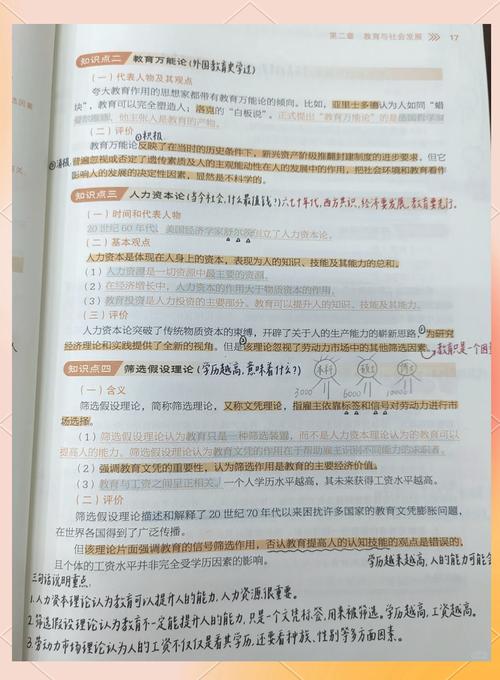 第二章 教育与社会发展 》》 17
知识点二 教育万能论(外国教育史学过)
(一)代表人物及其观点
夸大教育作用的思想家都带有教育万能论的倾向。比如,亚里士多德认为人如同“蜡
块”,教育可以完全塑造人;洛克的“白板说”。正式提出“教育万能论”的是
他主张人是教育的产物。
(二)评价 ①积极
教育万能论反映了在当时的历史条件下,新兴资产阶级推翻封建制度的进步要求,但它
②消极 普遍忽视或否定了遗传素质及人的主观能动性在人的发展中的作用,把社会环境和教育看作
影响人的发展的决定性因素,显然是不科学的。
知识点三 人力资本论(当今社会,什么最值钱?)六七十年代,西方共识,经济要发展,教育要先行。
(一)时间和代表人物
20世纪60年代,美国经济学家舒尔茨创立了人力资本论。
(二)基本观点
人力资本是体现在人身上的资本,表现为人的知识、技能及其能力的总和。
(1)人力资源是一切资源中最主要的资源。
(2)在经济增长中,人力资本的作用大于物质资本的作用。
(3)教育投资是人力投资的主要部分。教育可以提升人的知识、技能及其能力。
(三)评价
人力资本论突破了传统物质资本的束缚,开辟了关于人的生产能力的崭新思路,①为研究
经济理论和实践提供了全新的视角。但是②该理论忽视了劳动力市场中的其他筛选因素。教育只是一个因
知识点四 筛选假设理论(学历越高,意味着什么?) 本科 硕士 博士
3000 6000 10000
(一)含义
筛选假设理论,简称筛选理论,又称文凭理论,指雇主依靠标签和信号对劳动力进行市
场选择。
(1)筛选假设理论认为教育只是一种筛选装置,而不是人力资本理论认为的教育可以
提高人的能力。筛选假设理论认为教育的作用在于帮助雇主识别不同能力的求职者。
(2)强调教育文凭的重要性,认为筛选作用是教育的主要经济价值。
(3)教育与工资之间呈正相关。一个人学历水平越高,其未来获得工资水平越高。
(二)评价
筛选假设理论描述和解释了20世纪70年代以来困扰许多国家的教育文凭膨胀问题,
在世界各国得到了广泛传播。
但该理论片面强调教育的信号筛选作用,否认教育提高人的认知技能的观点是错误的,
且个体的工资水平并非完全受学历因素的影响。 学历越来越高,人的能力可能会
三句话说明重点:
1.人力资本理论认为教育可以提升人的能力,人力资源很重要。
2.筛选假设理论认为教育不一定能提升人的能力,只是一个文凭标签,用来被筛选。学历越高,工资越高。
3.劳动力市场理论认为人的工资不仅仅是看其学历,还要看种族、性别等多方面因素。